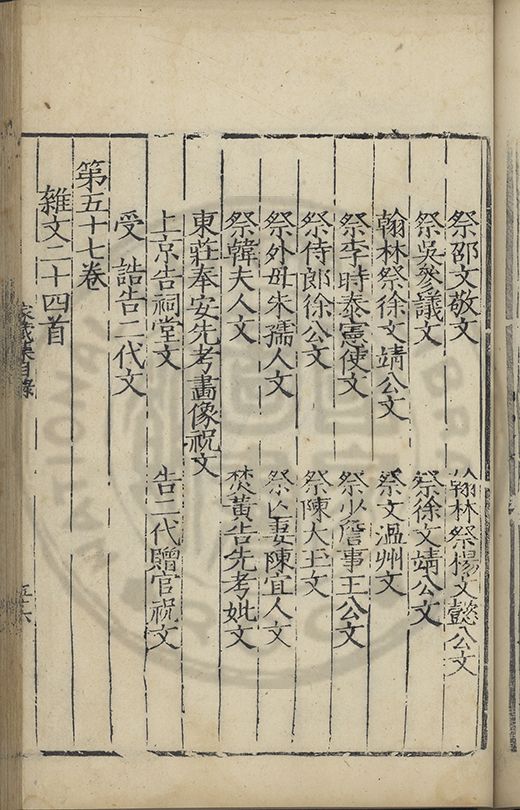 祭邵文敬文 翰林祭楊文懿公文
祭吳參議文 祭徐文靖公文
翰林祭徐文靖公文 祭文溫州文
祭李時泰憲使文 祭少詹事王公文
祭侍郎徐公文 祭陳大玉文
祭外母朱孺人文 祭亡妻陳宜人文
祭韓夫人文 焚黃告先考妣文
東莊奉安先考畫像祝文
上京告祠堂文 告二代贈官祝文
受 誥告二代文
第五十七卷
雜文二十四首
家藏集目錄